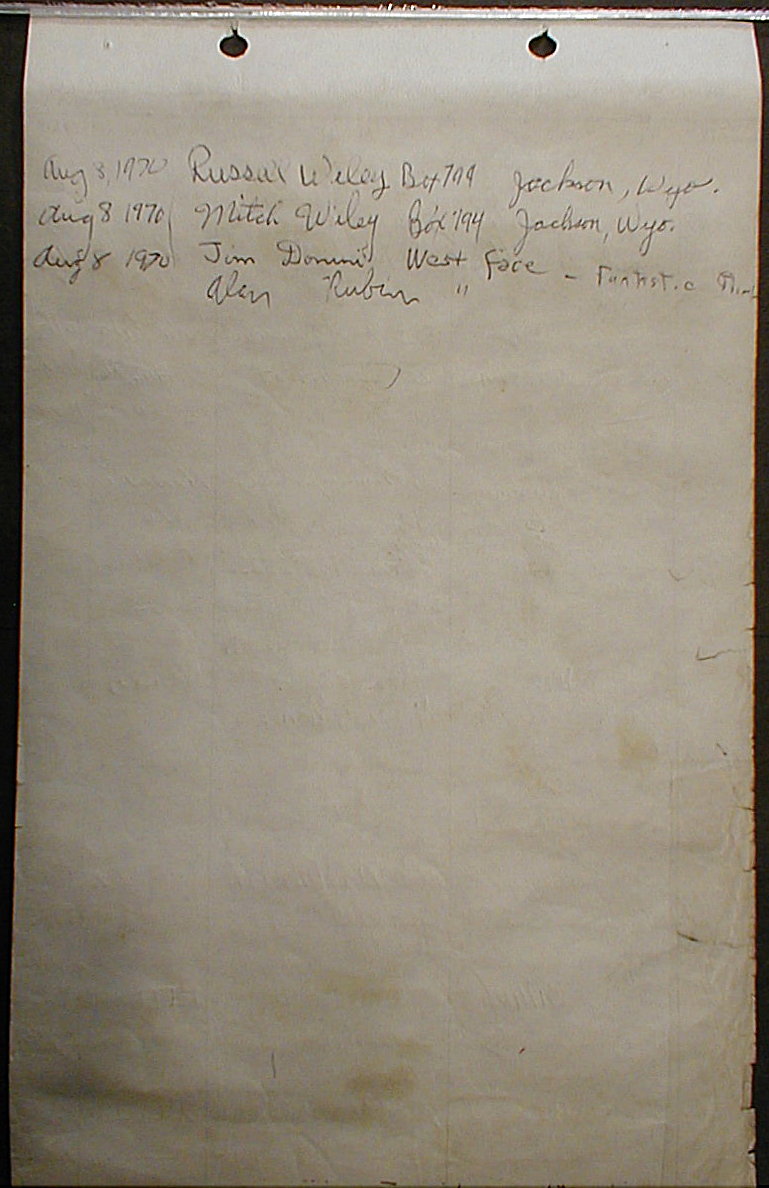 Aug 8, 1970 Russel Wiley Box 794 Jackson, Wyo.
Aug 8 1970 Mitch Wiley Box 794 Jackson, Wyo.
Aug 8 1970 Jim West Face - Fantastic
Alan Rubin "